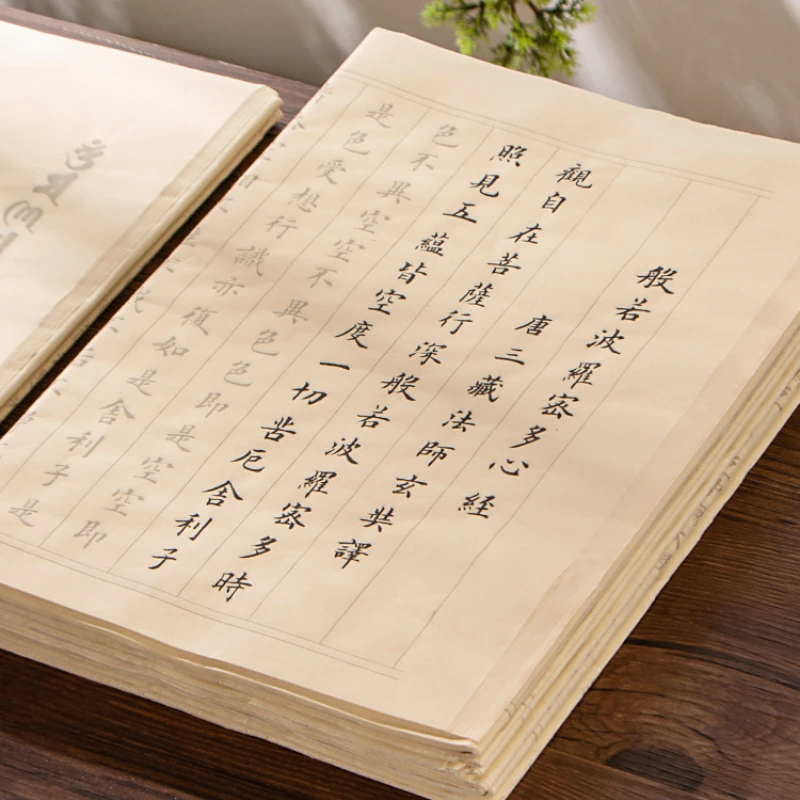 般若波羅密多心経
唐三藏法師玄奘譯
觀自在菩薩行深般若波羅密多時
照見五蘊皆空度一切苦厄舍利子
色不異空空不異色色即是空空即
是色受想行識亦復如是舍利子是